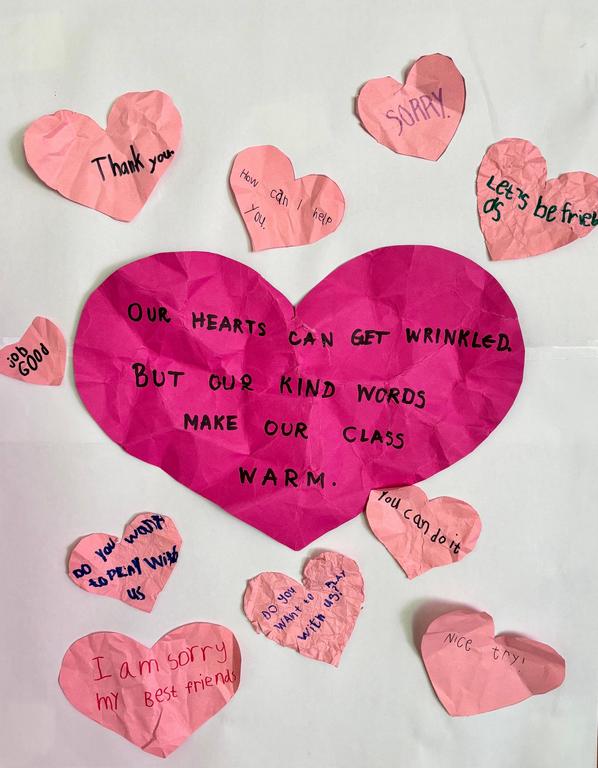 SORRY.
Thank you.
How can I help
you.
Let's be frien
ds
OUR HEARTS CAN GET WRINKLED.
BUT OUR KIND WORDS
MAKE OUR CLASS
WARM.
job
GOOD
You can do it
DO you want
to PLAY with
us
DO you
want to play
with us?
I am sorry
my Best friends
Nice try!